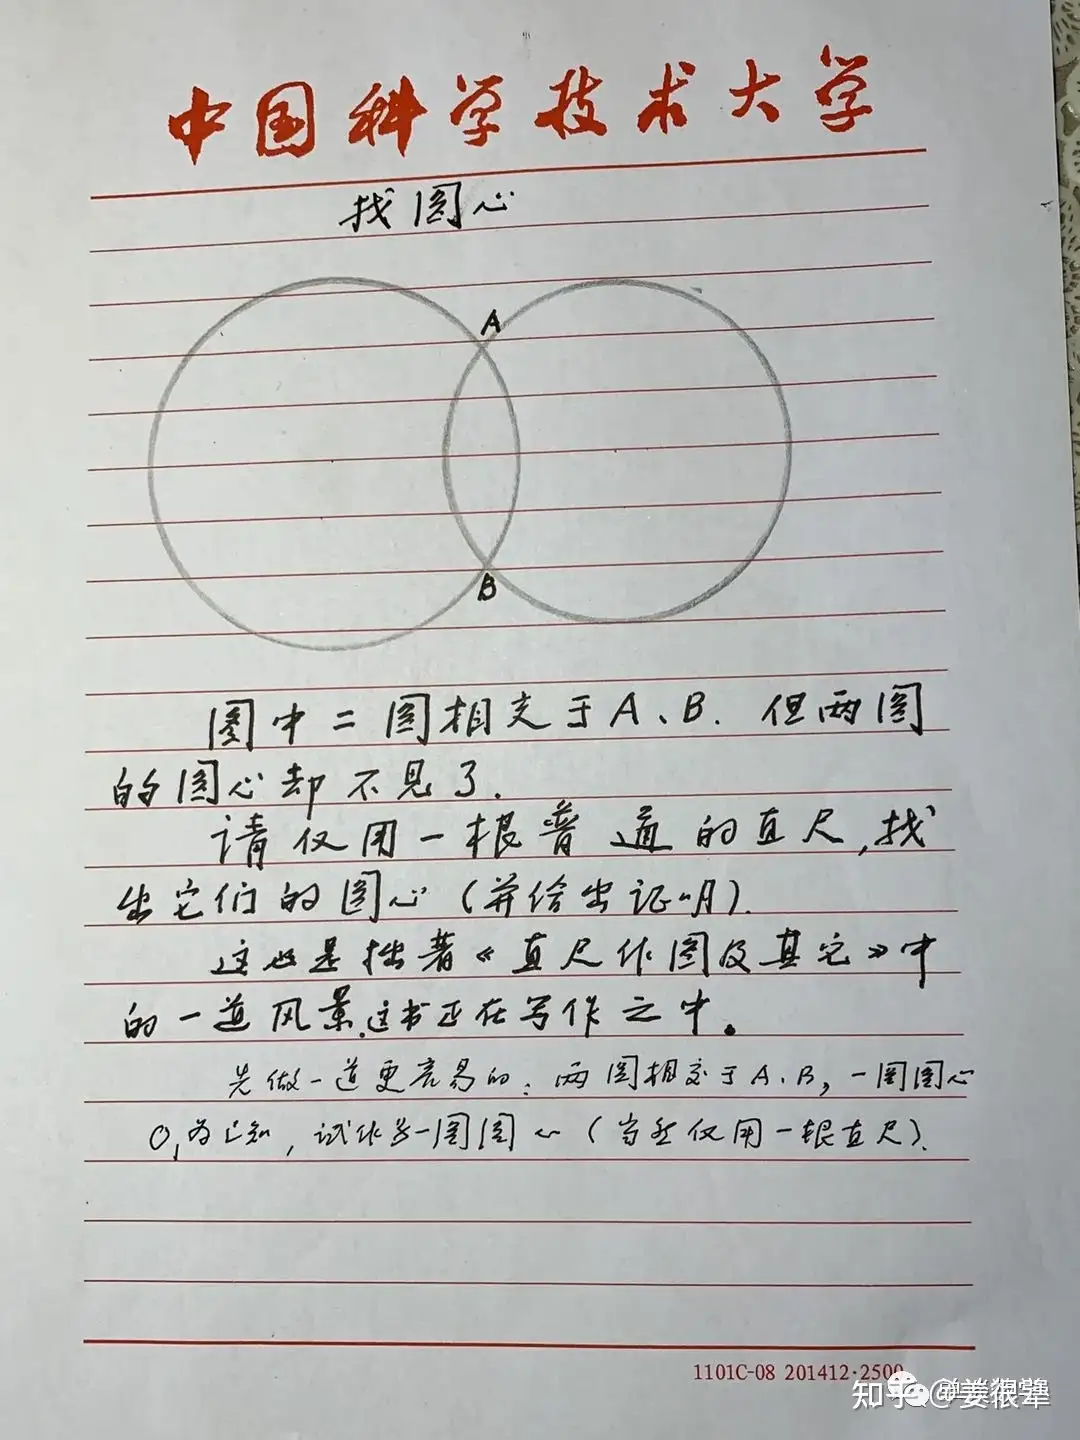 中国科学技术大学
找圆心
A
B
图中二圆相交于A、B. 但两圆
的圆心却不见了.
请仅用一根普通的直尺,找
出它们的圆心(并给出证明).
这也是拙著《直尺作图及其它》中
的一道风景.这书正在写作之中。
先做一道更容易的:两圆相交于A、B,一圆圆心
O₁为已知,试作另一圆圆心(当然仅用一根直尺).
1101C-08 201412·2500
知乎 @姜依牵